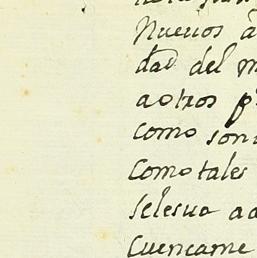 Nuevos a
dad del m
aotros p
como son
Como tales
Selesua ad
Cuencame